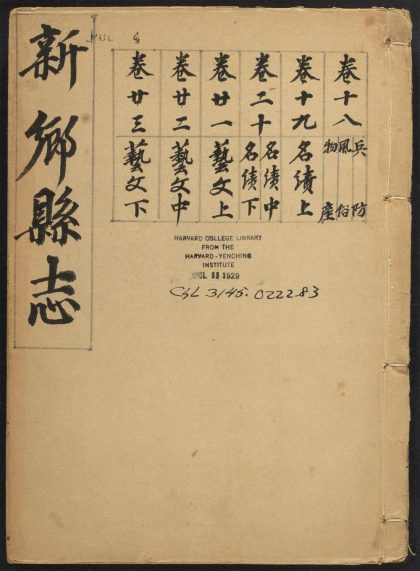 新鄉縣志
卷十八
兵防
風俗
物產
卷十九
名績上
卷二十
名績中
名績下
卷廿一
藝文上
卷廿二
藝文中
卷廿三
藝文下
HARVARD COLLEGE LIBRARY
FROM THE
HARVARD-YENCHING
INSTITUTE
JUL 11 1929
ChL 3145.0222.83